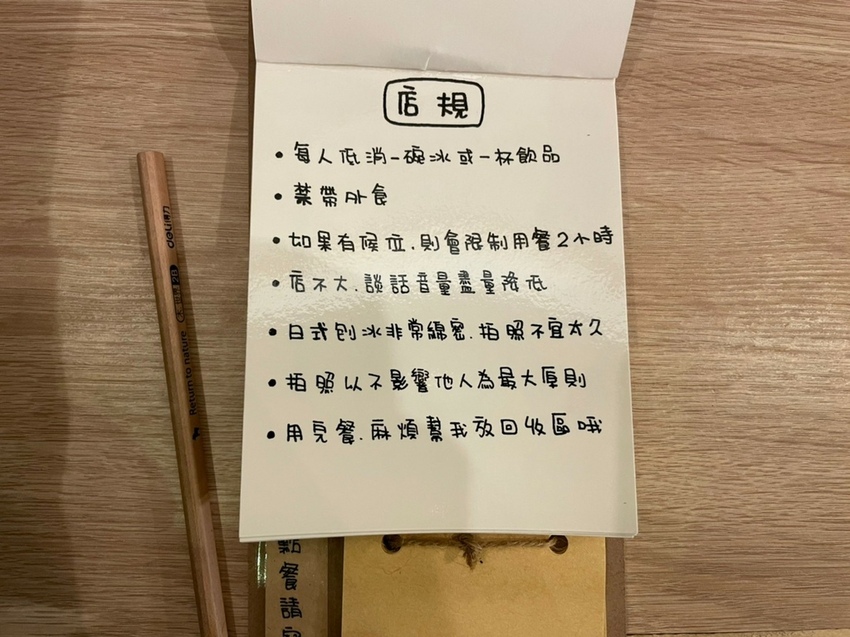 店規
• 每人低消一碗冰或一杯飲品
• 禁帶外食
• 如果有候位.則會限制用餐2小時
• 店不大.談話音量盡量降低
• 日式刨冰非常綿密.拍照不宜太久
• 拍照以不影響他人為最大原則
• 用完餐.麻煩幫我放回收區哦
點餐請寫
deli 得力
2B
Return to nature